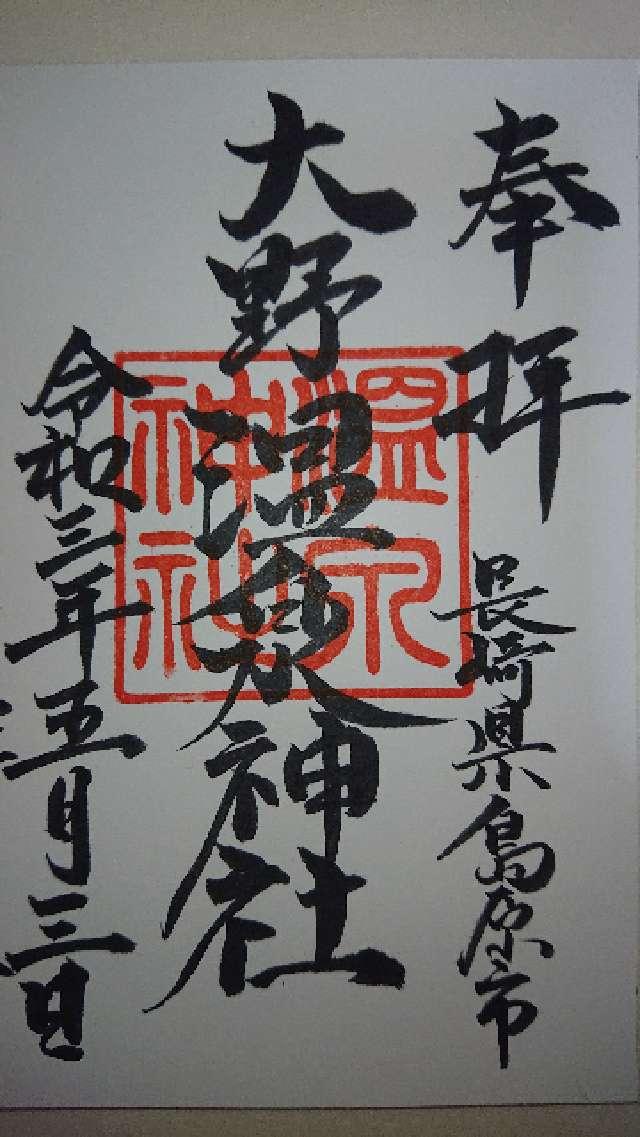 奉拝
長崎県島原市
大野温泉神社
温泉
神社
令和三年五月三日